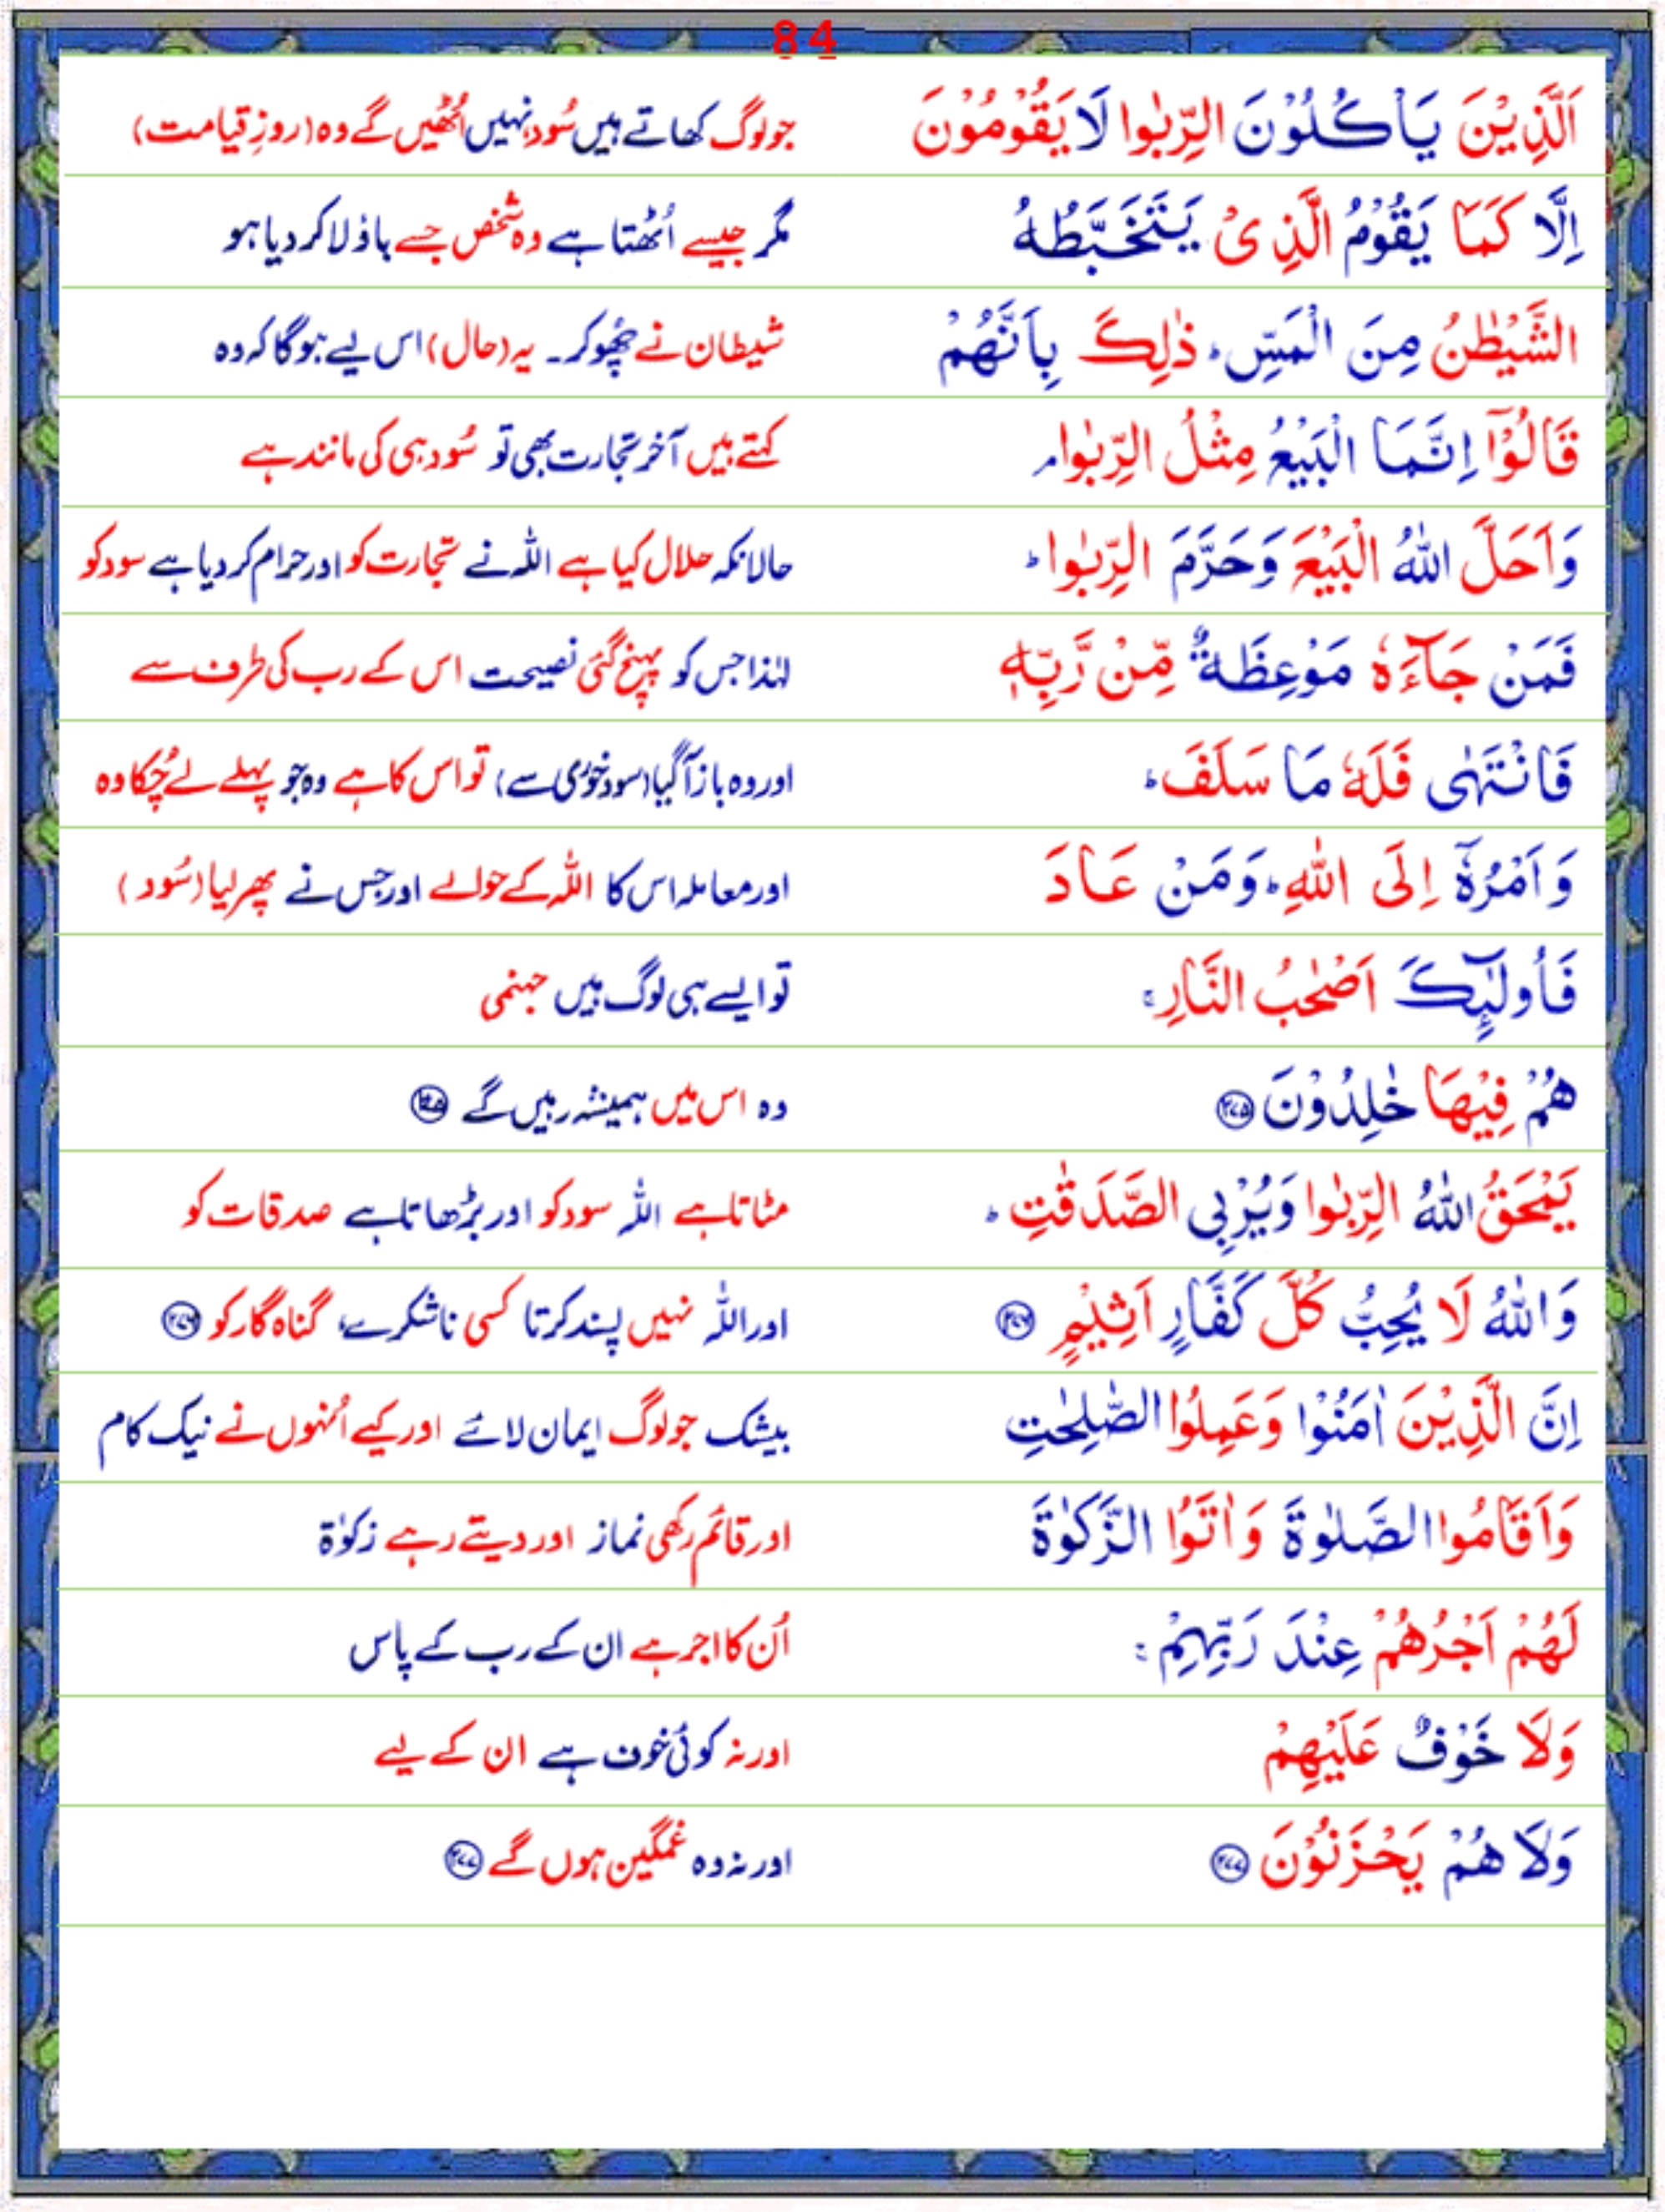 84
اَلَّذِيْنَ يَاْكُلُوْنَ الرِّبٰوا لَا يَقُوْمُوْنَ جو لوگ کھاتے ہیں سُود نہیں اُٹھیں گے وہ (روزِ قیامت)
اِلَّا كَمَا يَقُوْمُ الَّذِىْ يَتَخَبَّطُهُ مگر جیسے اُٹھتا ہے وہ شخص جسے باؤلا کر دیا ہو
الشَّيْطٰنُ مِنَ الْمَسِّ ؕ ذٰلِكَ بِاَنَّهُمْ شیطان نے چُھو کر۔ یہ (حال) اس لیے ہوگا کہ وہ
قَالُوْٓا اِنَّمَا الْبَيْعُ مِثْلُ الرِّبٰوا ۘ کہتے ہیں آخر تجارت بھی تو سُود ہی کی مانند ہے
وَاَحَلَّ اللّٰهُ الْبَيْعَ وَحَرَّمَ الرِّبٰوا ؕ حالانکہ حلال کیا ہے اللہ نے تجارت کو اور حرام کر دیا ہے سود کو
فَمَنْ جَآءَهٗ مَوْعِظَةٌ مِّنْ رَّبِّهٖ لہٰذا جس کو پہنچ گئی نصیحت اس کے رب کی طرف سے
فَانْتَهٰى فَلَهٗ مَا سَلَفَ ؕ اور وہ باز آ گیا (سود خوری سے) تو اس کا ہے وہ جو پہلے لے چُکا وہ
وَاَمْرُهٗۤ اِلَى اللّٰهِ ؕ وَمَنْ عَادَ اور معاملہ اس کا اللہ کے حوالے اور جس نے پھر لیا (سُود)
فَاُولٰٓٮِٕكَ اَصْحٰبُ النَّارِ ۚ تو ایسے ہی لوگ ہیں جہنمی
هُمْ فِيْهَا خٰلِدُوْنَ ۲۷۵ وہ اس میں ہمیشہ رہیں گے ۲۷۵
يَمْحَقُ اللّٰهُ الرِّبٰوا وَيُرْبِى الصَّدَقٰتِ ؕ مٹاتا ہے اللہ سود کو اور بڑھاتا ہے صدقات کو
وَاللّٰهُ لَا يُحِبُّ كُلَّ كَفَّارٍ اَثِيْمٍ ۲۷۶ اور اللہ نہیں پسند کرتا کسی ناشکرے، گناہ گار کو ۲۷۶
اِنَّ الَّذِيْنَ اٰمَنُوْا وَعَمِلُوا الصّٰلِحٰتِ بیشک جو لوگ ایمان لائے اور کیے اُنہوں نے نیک کام
وَاَقَامُوا الصَّلٰوةَ وَاٰتَوُا الزَّكٰوةَ اور قائم رکھی نماز اور دیتے رہے زکوٰۃ
لَهُمْ اَجْرُهُمْ عِنْدَ رَبِّهِمْ ۚ اُن کا اجر ہے ان کے رب کے پاس
وَلَا خَوْفٌ عَلَيْهِمْ اور نہ کوئی خوف ہے ان کے لیے
وَلَا هُمْ يَحْزَنُوْنَ ۲۷۷ اور نہ وہ غمگین ہوں گے ۲۷۷